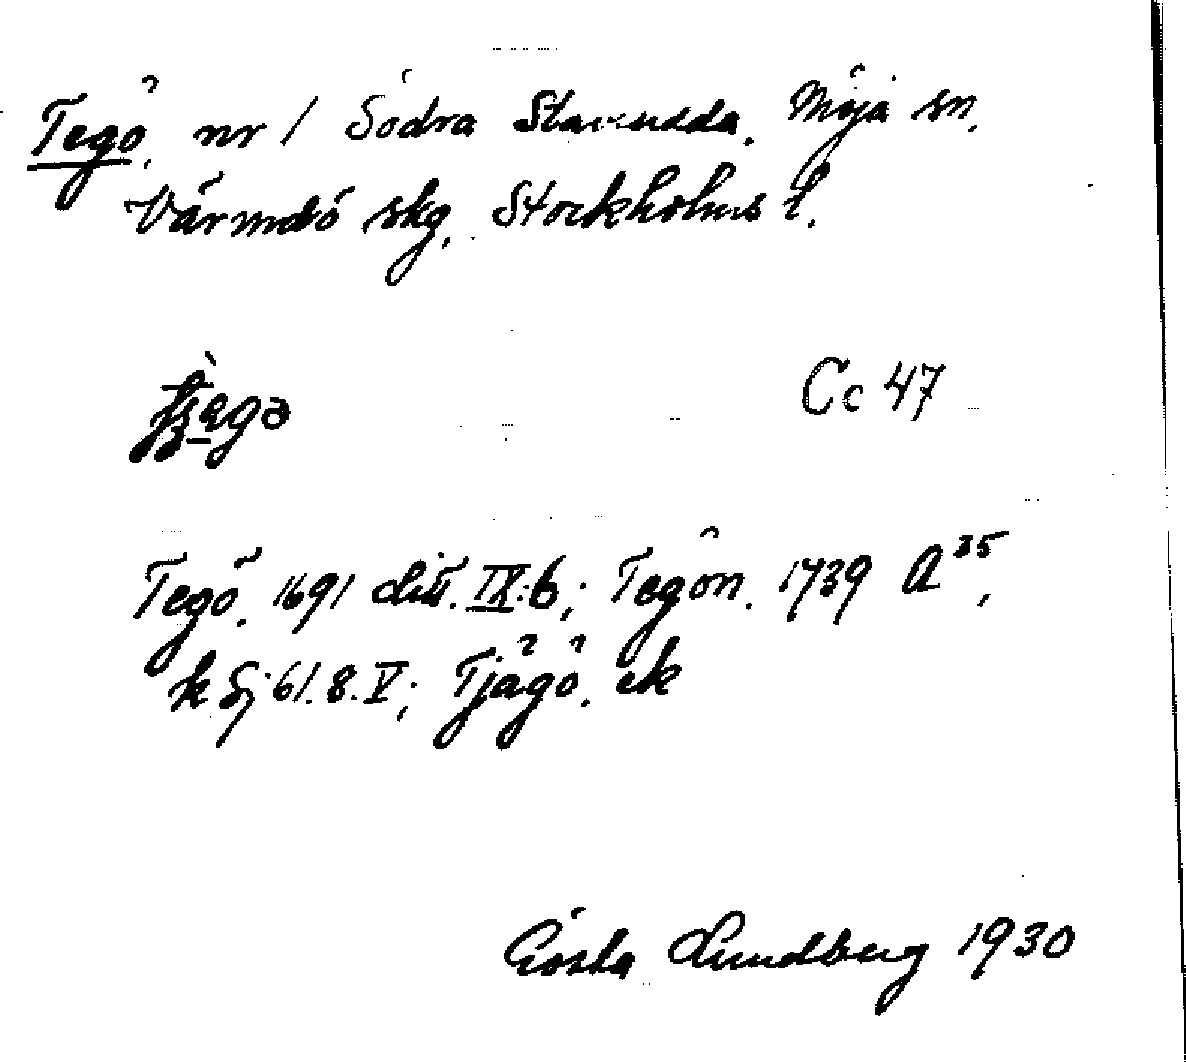 Tegö, nr 1 Södra Stavsudda, Möja sn,
Värmdö skg, Stockholms l.
Cc 47
Tegö, 1691 Litt. IX:6; Tegön, 1739 A 35,
k Sj 61.8.V; Tjägö, ek
Gösta Lundberg 1930